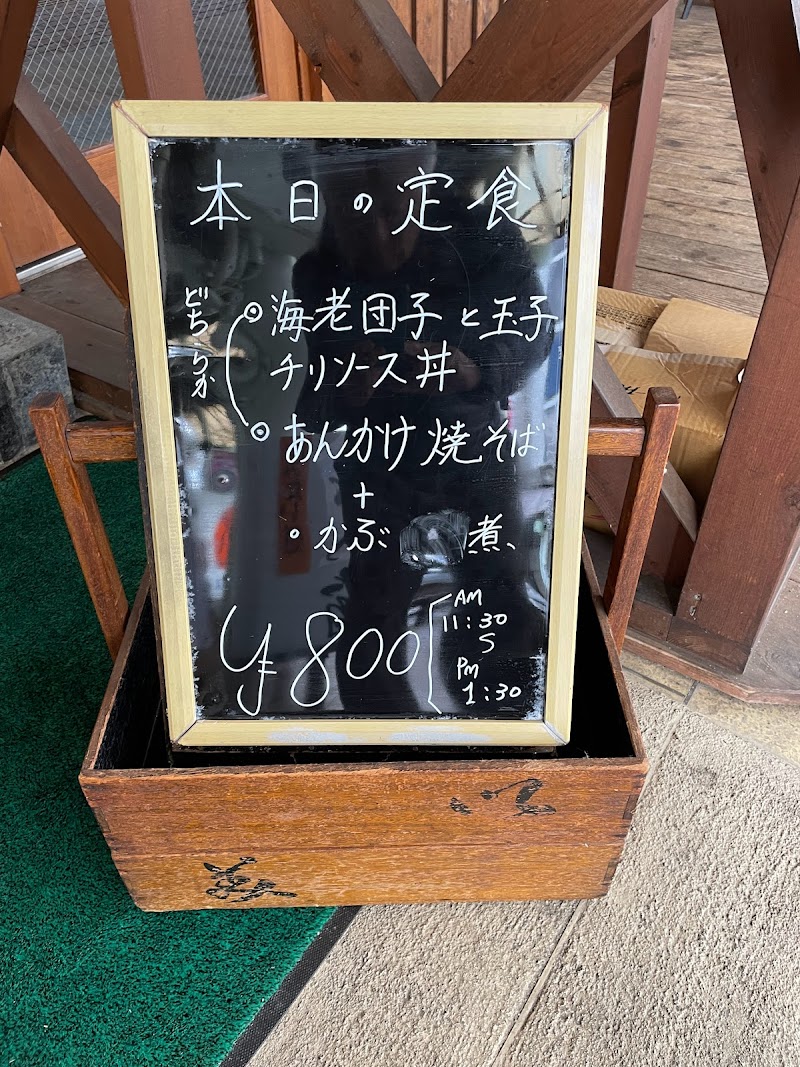 本日の定食
どちらか
◎海老団子と玉子
チリソース丼
◎あんかけ焼そば
+
・かぶ 煮、
¥800
AM
11:30
S
PM
1:30